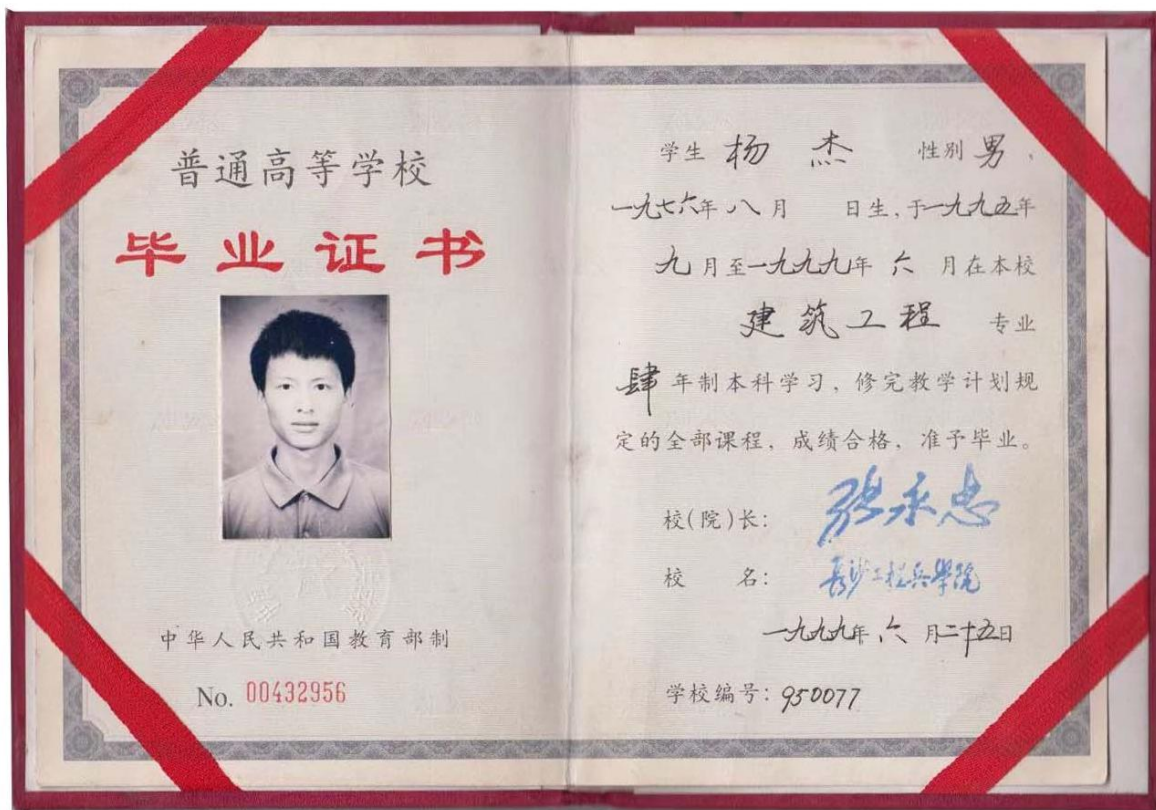 普通高等学校
毕业证书
中华人民共和国教育部制
No. 00432956
学生 杨 杰 性别 男,
一九七六年 八月 日生,于一九九五年
九月至一九九九年 六 月在本校
建筑工程 专业
肆 年制本科学习,修完教学计划规
定的全部课程,成绩合格,准予毕业。
校(院)长: 张永忠
校 名: 长沙工程兵學院
一九九九年 六 月二十五日
学校编号:950077